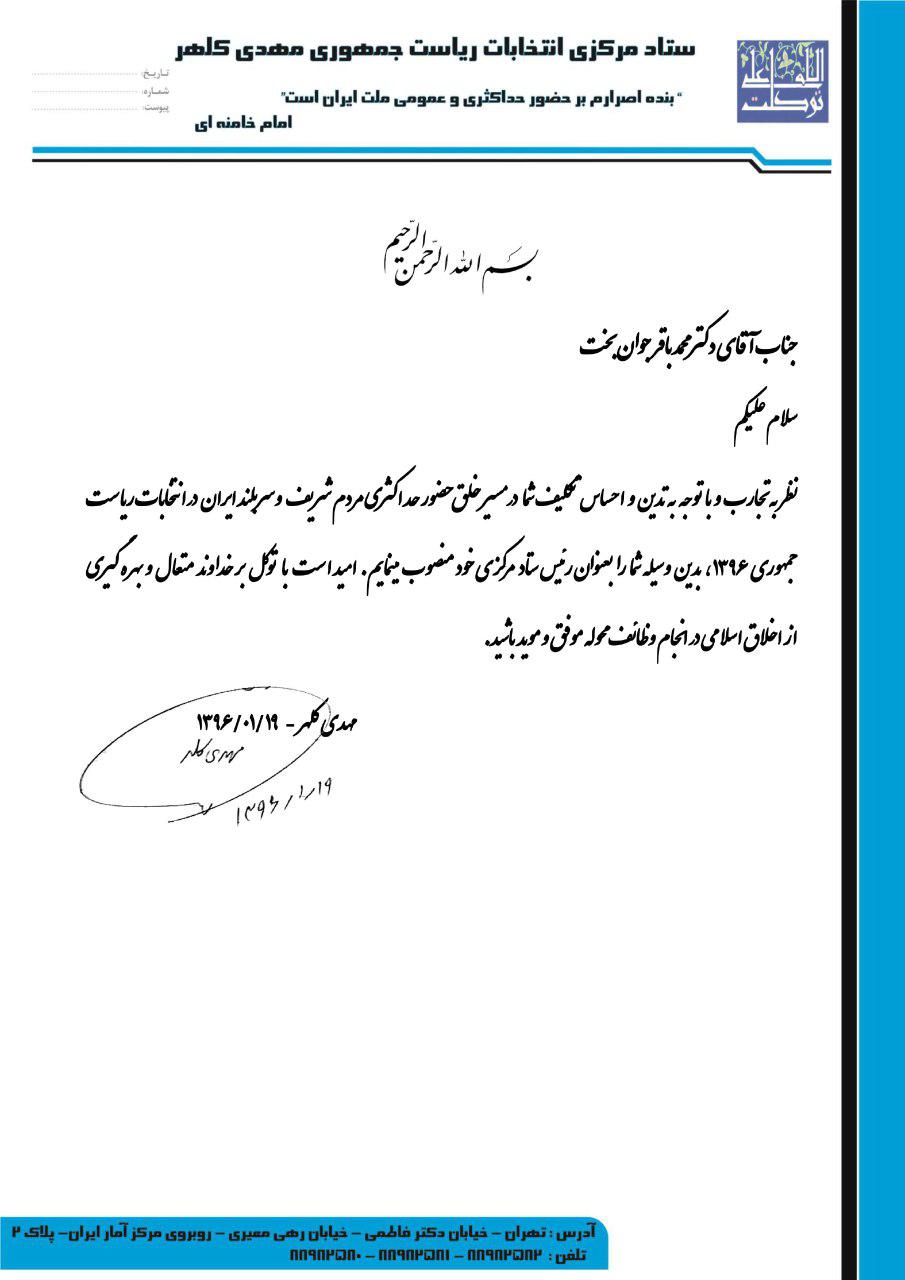 ستاد مرکزی انتخابات ریاست جمهوری مهدی کلهر
توکلت علی الله
تاریخ:
شماره:
پیوست:
“بنده اصرارم بر حضور حداکثری و عمومی ملت ایران است”
امام خامنه ای
بسم الله الرّحمن الرّحیم
جناب آقای دکتر محمد باقر جوان بخت
سلام علیکم
نظر به تجارب و با توجه به تدین و احساس تکلیف شما در مسیر خلق حضور حداکثری مردم شریف و سربلند ایران در انتخابات ریاست
جمهوری ۱۳۹۶، بدین وسیله شما را بعنوان رئیس ستاد مرکزی خود منصوب مینمایم. امید است با توکل بر خداوند متعال و بهره گیری
از اخلاق اسلامی در انجام وظائف محوله موفق و موید باشید.
مهدی کلهر - ۱۳۹۶/۰۱/۱۹
مهدی کلهر
۱۳۹۶/۱/۱۹
آدرس : تهران – خیابان دکتر فاطمی – خیابان رهی معیری – روبروی مرکز آمار ایران– پلاک ۲
تلفن : ۸۸۹۸۲۵۸۲ – ۸۸۹۸۲۵۸۱ – ۸۸۹۸۲۵۸۰